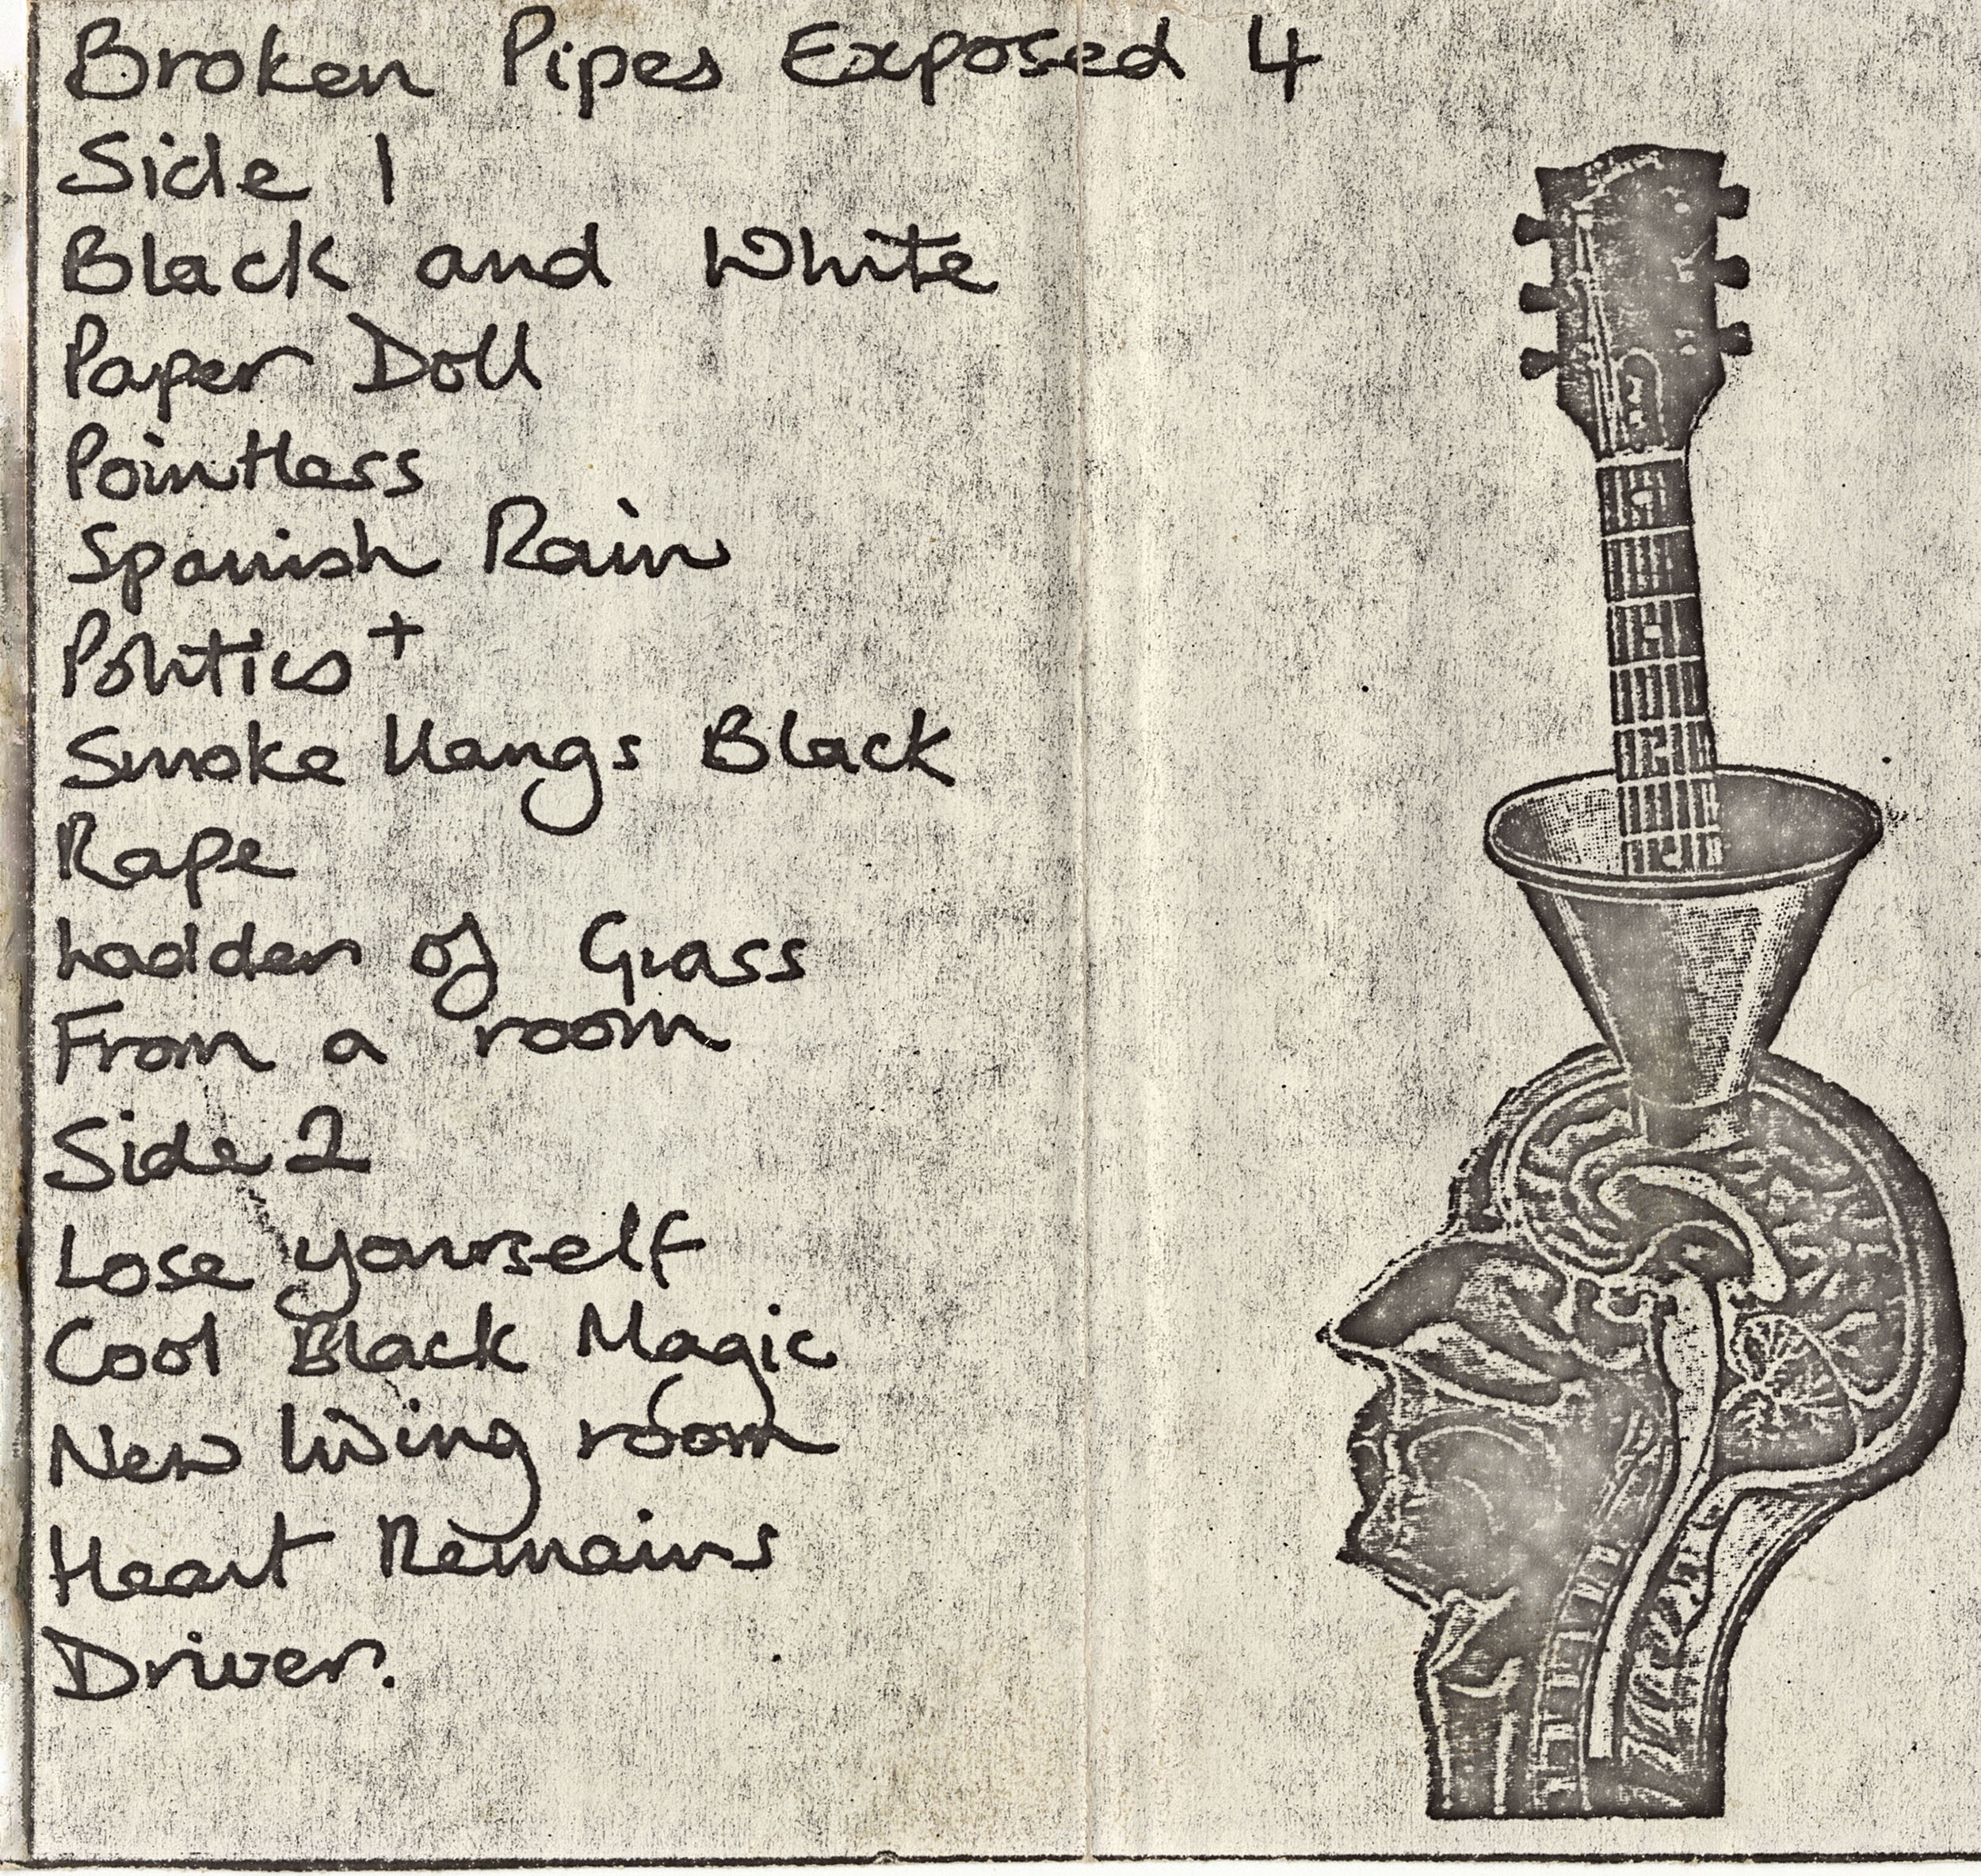 Broken Pipes Exposed 4
Side 1
Black and White
Paper Doll
Pointless
Spanish Rain
Politics +
Smoke Hangs Black
Rape
Ladder of Grass
From a room
Side 2
Lose yourself
Cool Black Magic
New living room
Heart Remains
Driver.